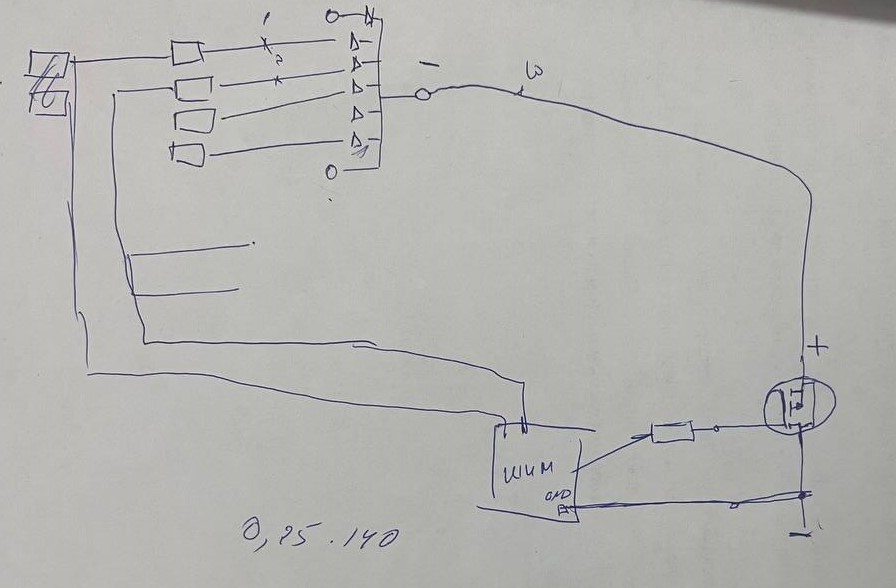 1
2
−
3
+
ШИМ
GND
−
0,25.140